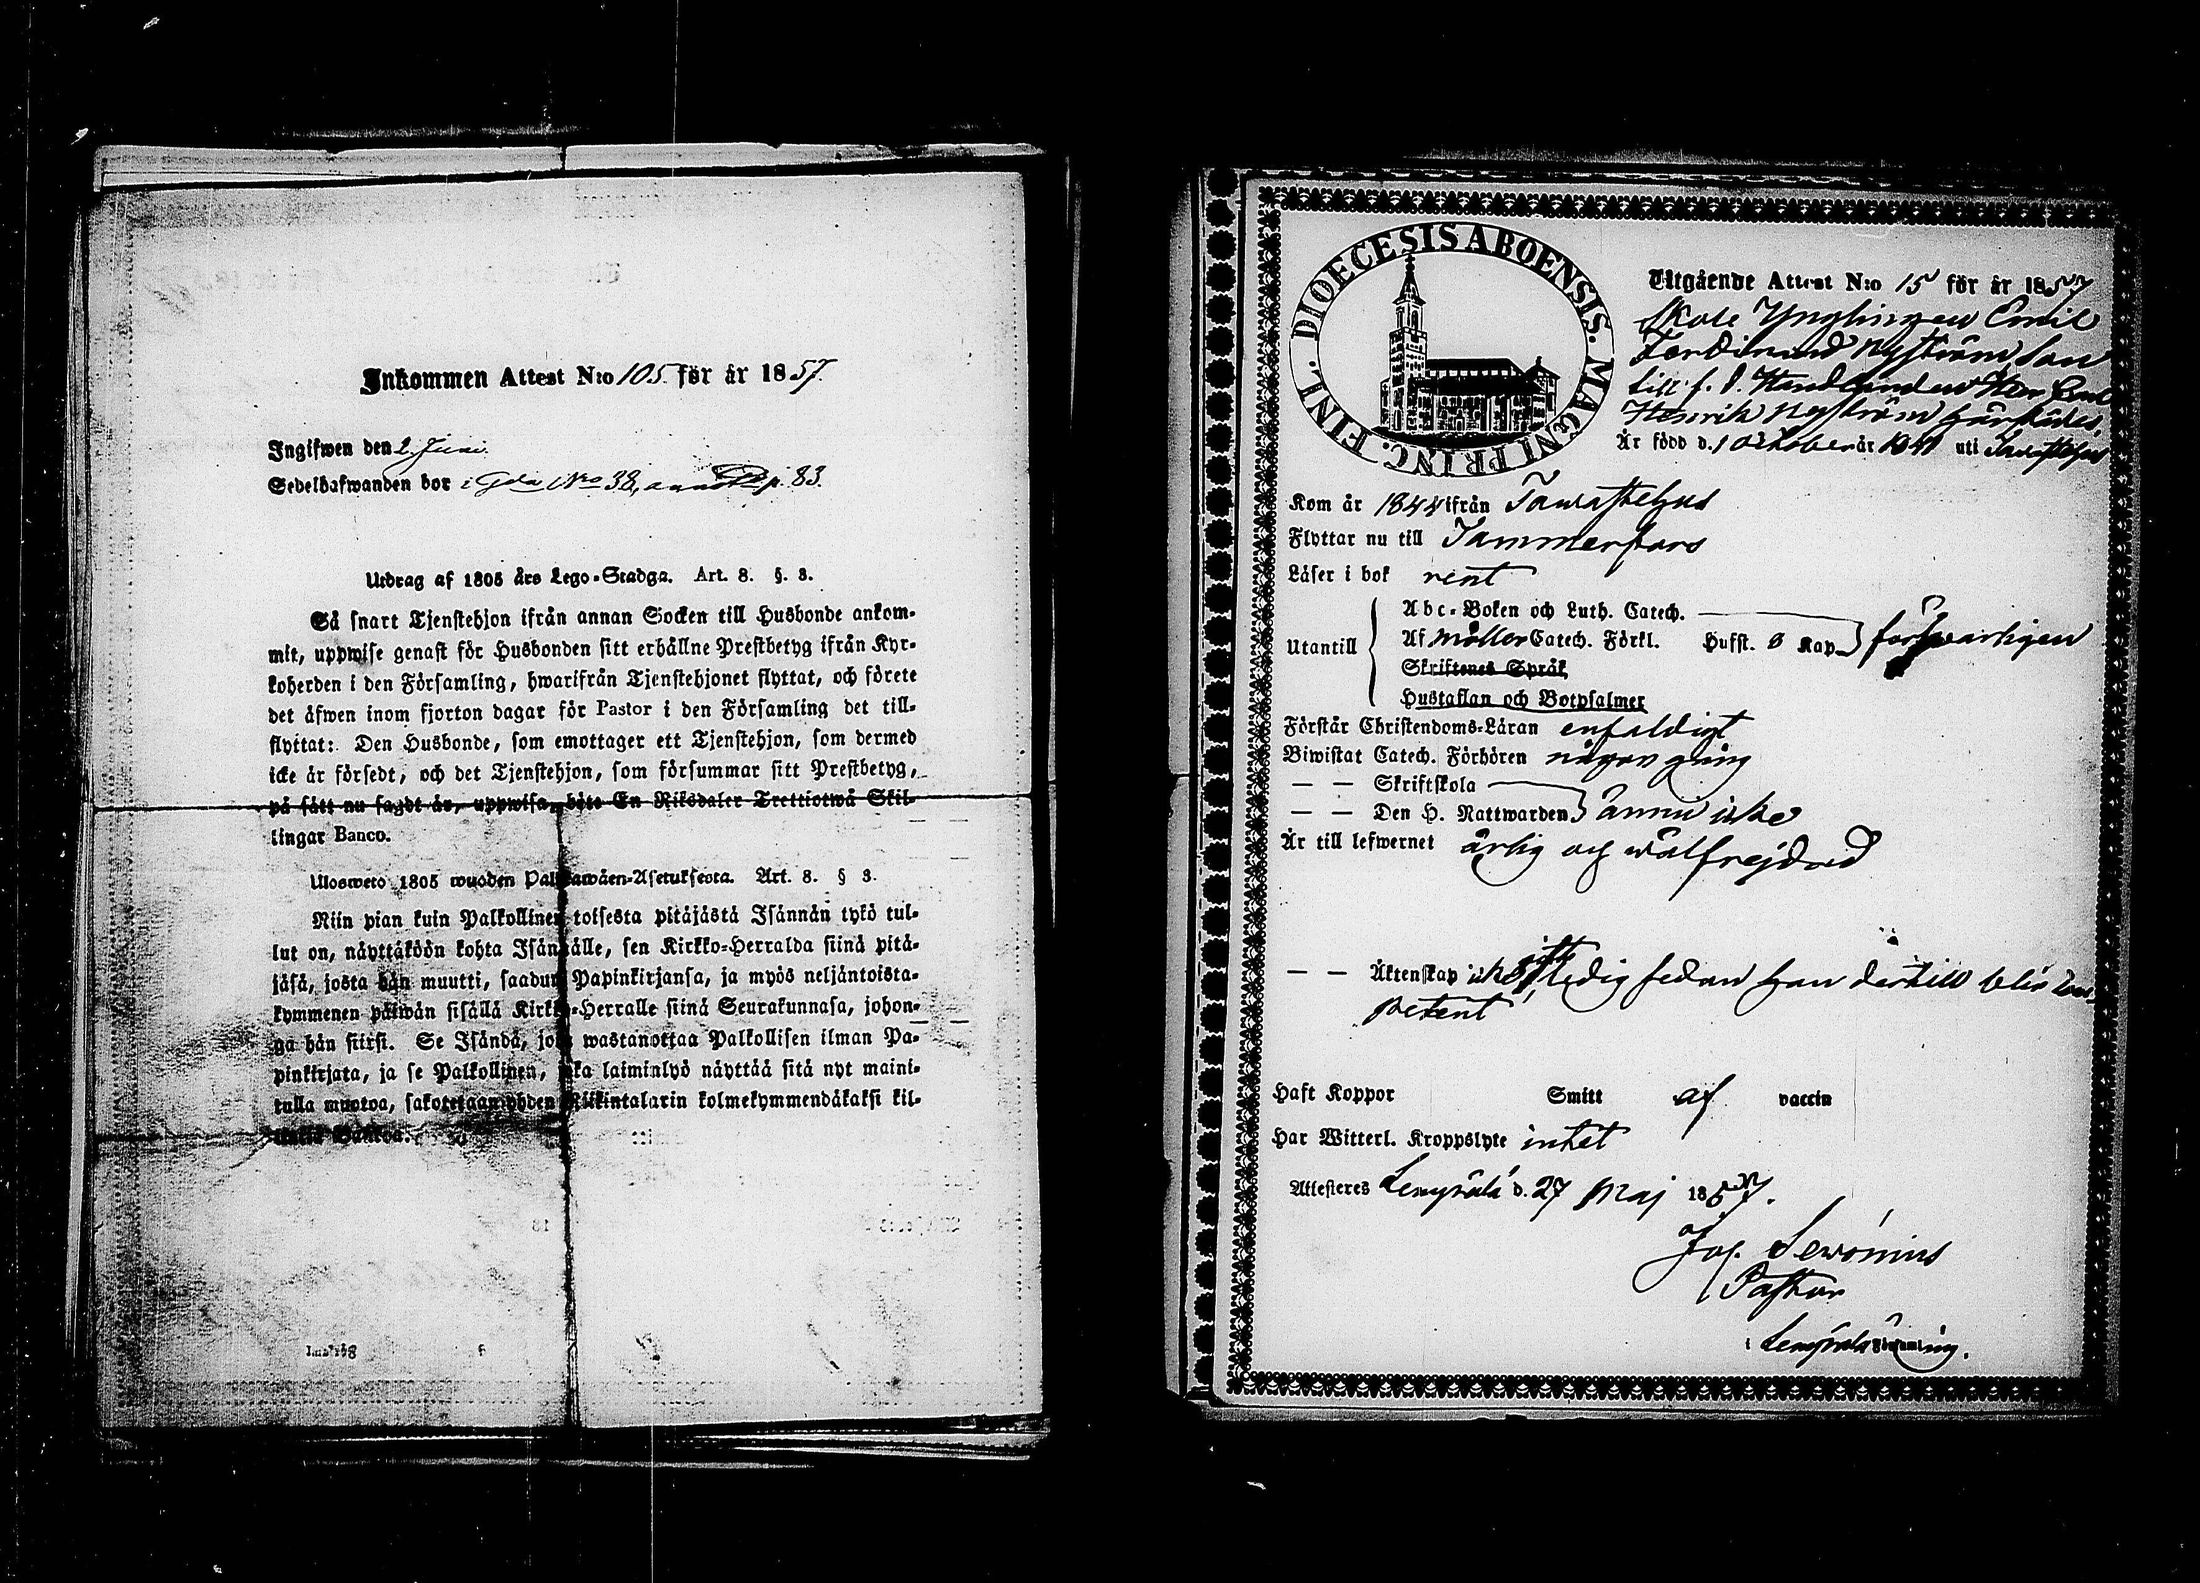 Inkommen Attest N:o 105. för år 1857.
Ingifwen den 2 Juni.
Sedelhafwanden bor i Gda No 38, p. 83.
Utdrag af 1805 års Lego-Stadga. Art. 8. §. 3.
Så snart Tjenstehjon ifrån annan Socken till Husbonde ankom-
mit, uppwise genast för Husbonden sitt erhållne Prestbetyg ifrån Kyr-
koherden i den Församling, hwarifrån Tjenstehjonet flyttat, och förete
det äfwen inom fjorton dagar för Pastor i den Församling det till-
flyttat: Den Husbonde, som emottager ett Tjenstehjon, som dermed
icke är försedt, och det Tjenstehjon, som försummar sitt Prestbetyg,
på sätt nu sagdt är, uppwisa, böte En Riksdaler Trettiotwå Skil-
lingar Banco.
Ulosweto 1805 wuoden Palkawäen-Asetuksesta. Art. 8. § 3.
Niin pian kuin Palkollinen toisesta pitäjästä Isännän tykö tul-
lut on, näyttäköön kohta Isännälle, sen Kirkko-Herralda siinä pitä-
jäsä, josta hän muutti, saadun Papinkirjansa, ja myös neljäntoista-
kymmenen päiwän sisällä Kirkko-Herralle siinä Seurakunnasa, johon-
ga hän siirsi. Se Isändä, joka wastanottaa Palkollisen ilman Pa-
pinkirjata, ja se Palkollinen, joka laiminlyö näyttää sitä nyt maini-
tulla muotoa, sakotetaan yhden Riikintalarin kolmekymmendäkaksi kil-
lingiä Bankoa.
DIOECESIS ABOENSIS. MAGNI PRINC. FINL.
Utgående Attest N:o 15 för år 1857
Skole Ynglingen Emil
Ferdinand Nyström Son
till f. d. Handlanden Herr Emil
Henrik Nyström härstädes.
Är född d. 1 Oktober år 1841 uti Tavastehus
Kom år 1844 ifrån Tawastehus
Flyttar nu till Tammerfors
Läser i bok rent
Utantill
Abc-Boken och Luth. Catech.
Af Möller Catech. Förkl. Hufst. 3 Kap. försvarligen
Skriftenes Språk
Hustaflan och Botpsalmer
Förstår Christendoms-Läran enfaldigt
Biwistat Catech. Förhören någon gång
— — Skriftskola
— — Den H. Nattwarden ännu icke
Är till lefwernet ärlig och wälfrejdad
— — Äktenskap ledig sedan han dertill blir kom-
petent
Haft Koppor Smitt af vaccin
Har Witterl. Kroppslyte intet
Attesteres Lempälä d. 27 Maj 1857.
Joh. Sewonius
Pastor
i Lempälä Församling.